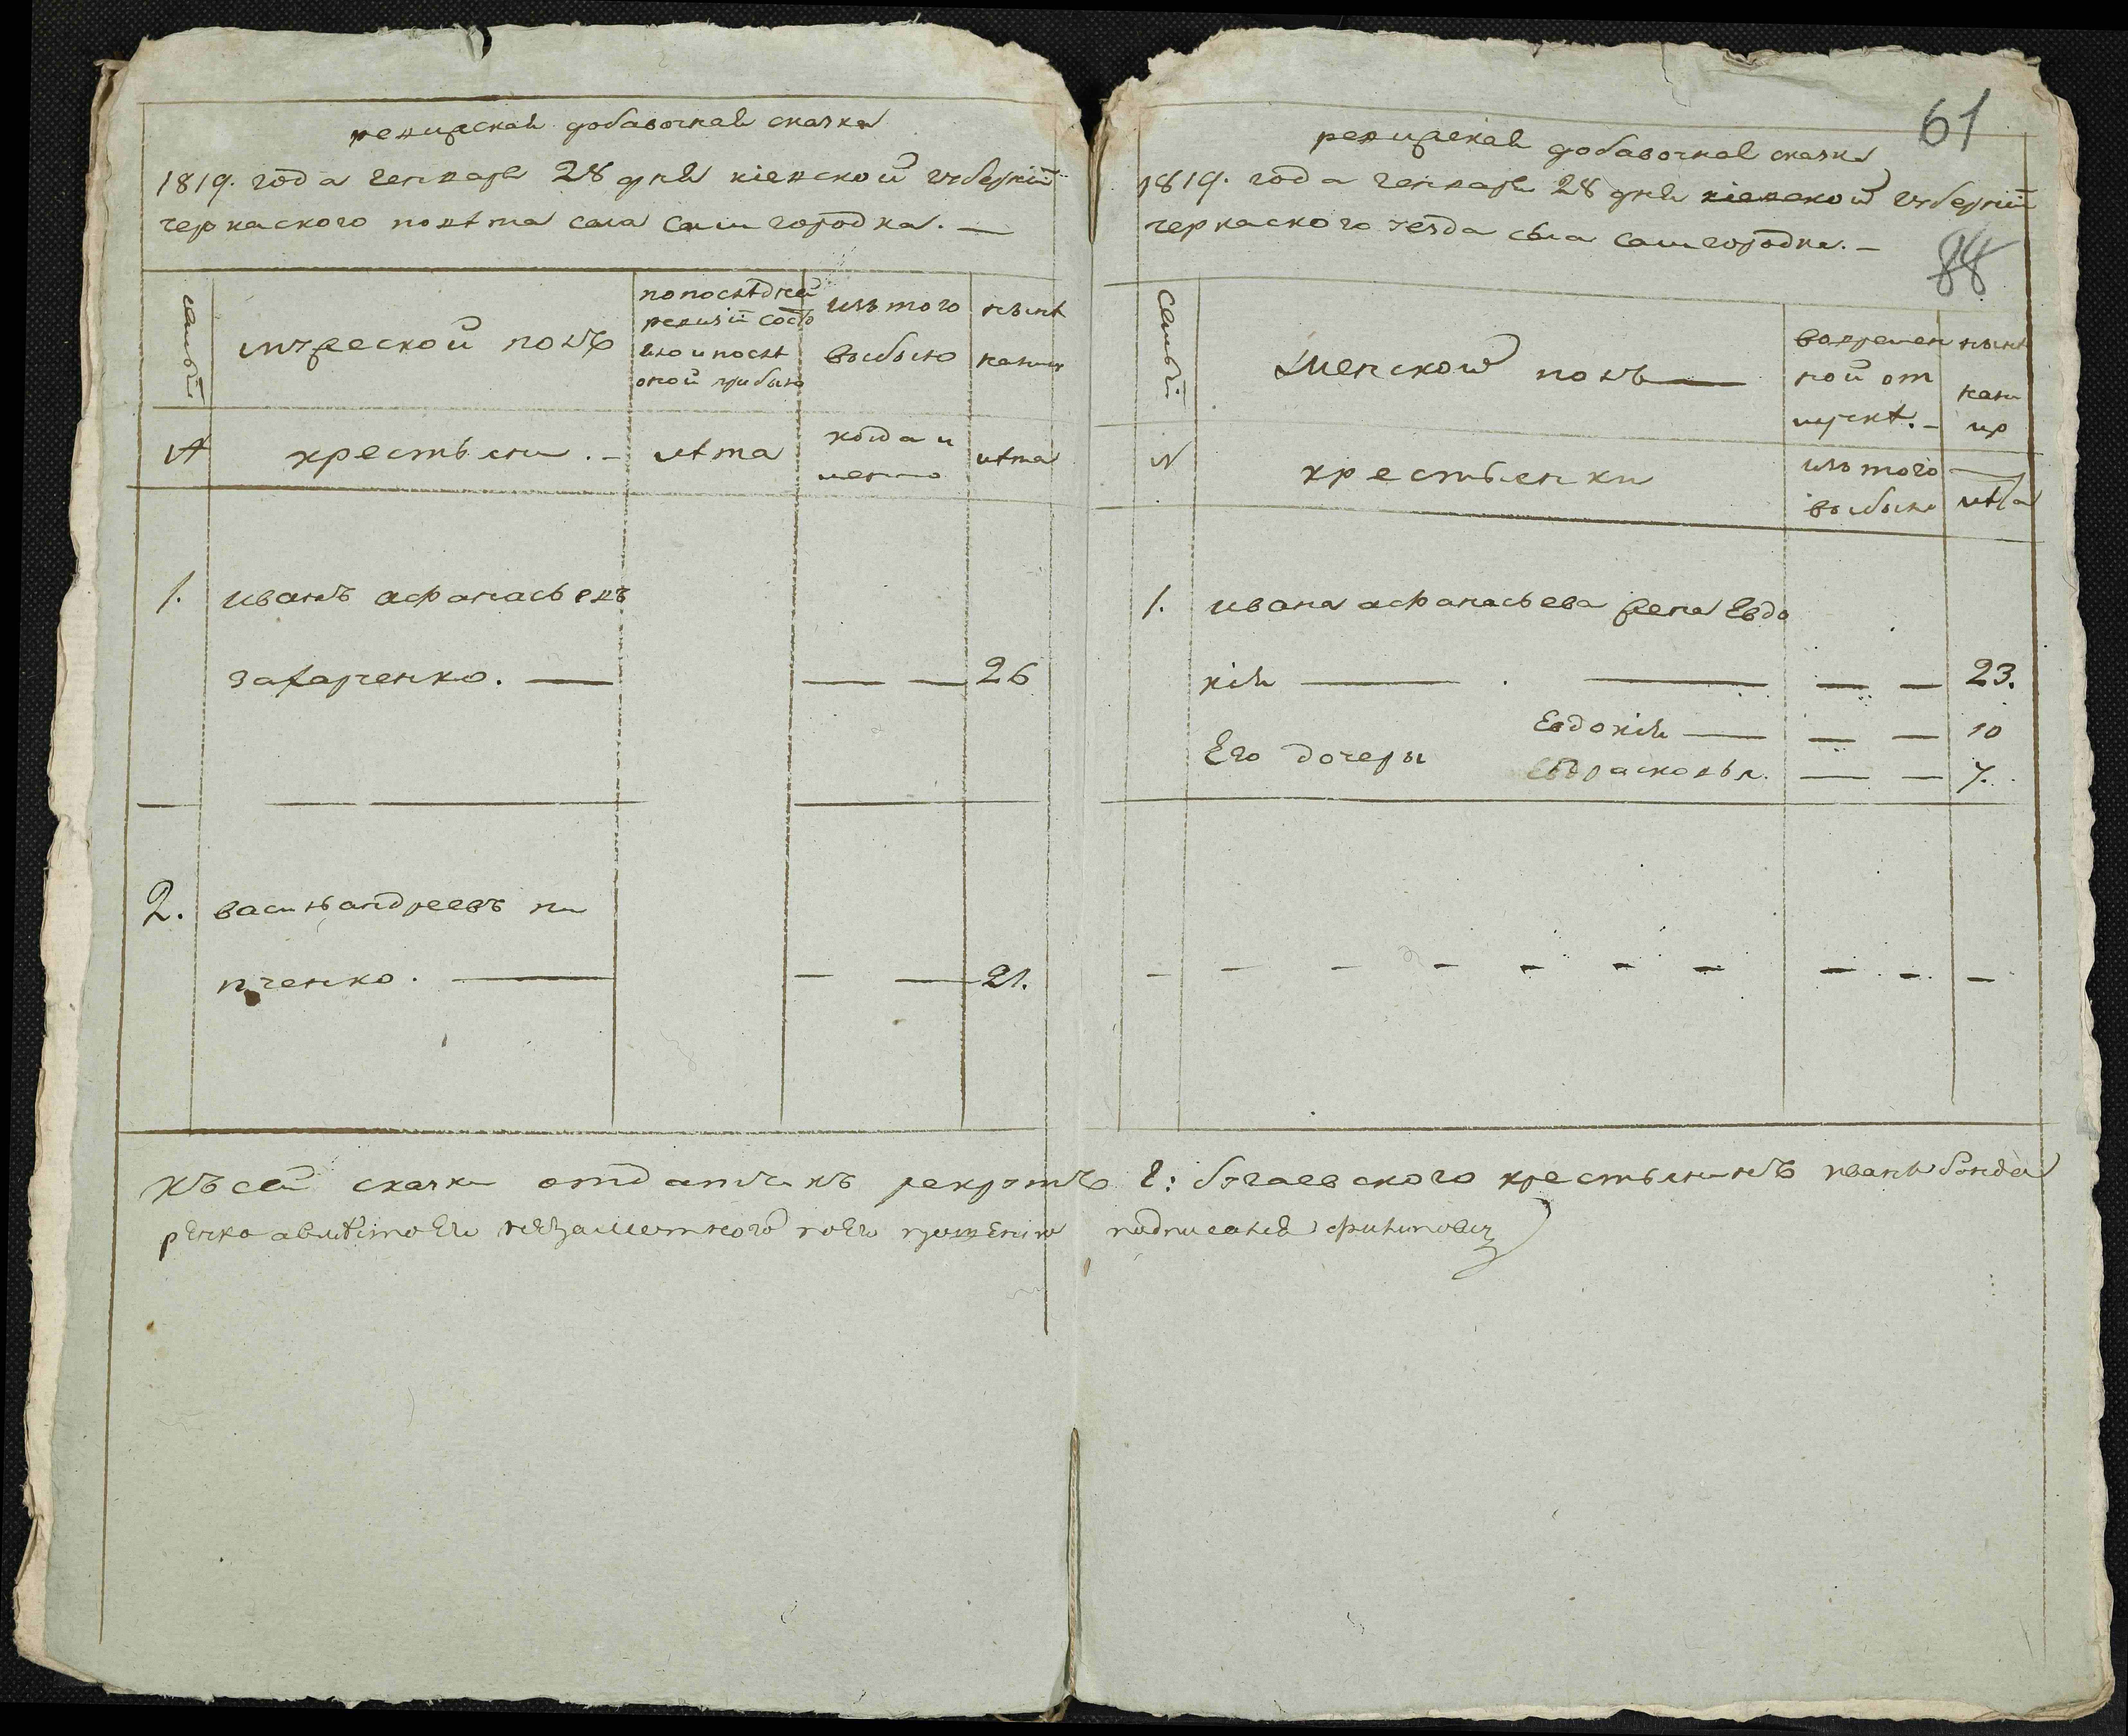 ревижская добавочная сказка
1819. года генваря 28 дня кіевской губерніи
черкаского повѣта села Самгородка. —
семьи
мужеской полъ
по послѣдней
ревизіи состо
яло и послѣ
оной прибыло
изъ того
выбыло
нынѣ
на лицо
№
крестьяни. —
лѣта
когда и
менно
лѣта
1.
иванъ афанасьевъ
захарченко. —
— —
26
2.
василь андреевъ пи
пченко. —
— —
21.
61
ревижская добавочная сказка
1819. года генваря 28 дня кіевской губерніи
черкаского уезда села Самгородка. —
88
семьи
Женской полъ —
во времен
ной от
лучкѣ. —
нынѣ
нали
цо
№
крестьянки
изъ того
выбыло
—
лѣта
1.
ивана афанасьева жена Евдо
кія — . — — — 23.
Его дочеры
Евдокія — — — 10
— — 7.
— — — — — — — — — —
Къ сей сказки отдатчикъ рекрутъ Г: бугаевского крестьянинъ иванъ бонда
ренко а вмѣсто Его неграмотного по Его прошенію подписался филипович